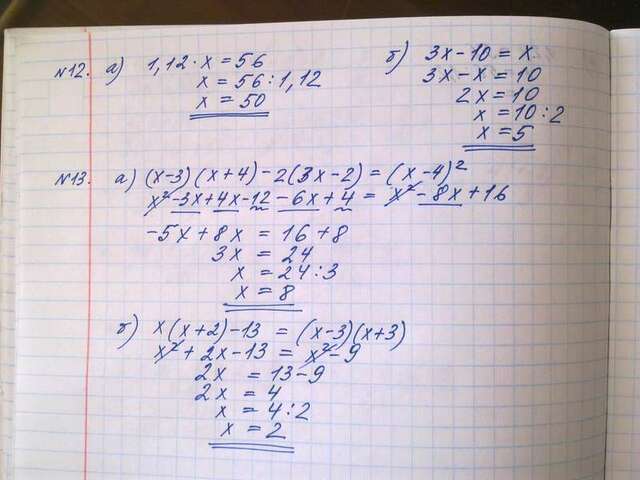 №12. а) 1,12 · x = 56
x = 56 : 1,12
x = 50
б) 3x - 10 = x
3x - x = 10
2x = 10
x = 10 : 2
x = 5
№13. а) (x-3)(x+4) - 2(3x-2) = (x-4)²
x² - 3x + 4x - 12 - 6x + 4 = x² - 8x + 16
-5x + 8x = 16 + 8
3x = 24
x = 24 : 3
x = 8
б) x(x+2) - 13 = (x-3)(x+3)
x² + 2x - 13 = x² - 9
2x = 13 - 9
2x = 4
x = 4 : 2
x = 2